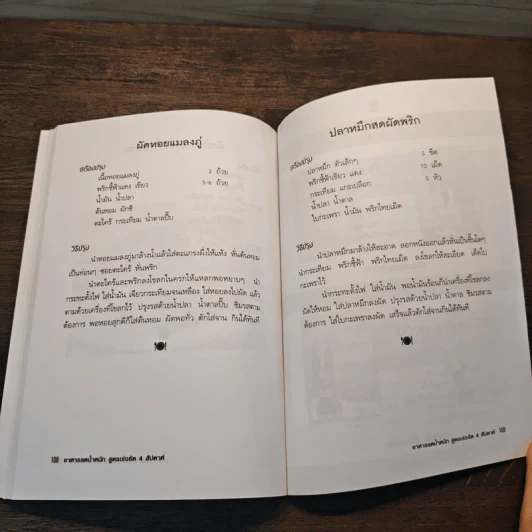 ผัดหอยแมลงภู่
เครื่องปรุง
เนื้อหอยแมลงภู่ 2 ถ้วย
พริกชี้ฟ้าแดง เขียว 5-6 ถ้วย
น้ำมัน น้ำปลา
ต้นหอม ผักชี
ตะไคร้ กระเทียม น้ำตาลปี๊บ
วิธีปรุง
นำหอยแมลงภู่มาล้างน้ำแล้วใส่ตะแกรงผึ่งให้แห้ง หั่นต้นหอม
เป็นท่อนๆ ซอยตะไคร้ หั่นพริก
นำตะไคร้และพริกลงโขลกในครกให้แหลกพอหยาบๆ นำ
กระทะตั้งไฟ ใส่น้ำมัน เจียวกระเทียมจนเหลือง ใส่หอยลงไปผัด แล้ว
ตามด้วยเครื่องที่โขลกไว้ ปรุงรสด้วยน้ำปลา น้ำตาลปี๊บ ชิมรสตาม
ต้องการ พอหอยสุกดีก็ใส่ต้นหอม ผัดพอทั่ว ตักใส่จาน กินได้ทันที
108 อาหารลดน้ำหนัก สูตรเร่งรัด 4 สัปดาห์
ปลาหมึกสดผัดพริก
เครื่องปรุง
ปลาหมึก ตัวเล็กๆ 3 ขีด
พริกชี้ฟ้าเขียว แดง 10 เม็ด
กระเทียม แกะเปลือก 5 หัว
น้ำปลา น้ำตาล
ใบกะเพรา น้ำมัน พริกไทยเม็ด
วิธีปรุง
นำปลาหมึกมาล้างให้สะอาด ลอกหนังออกแล้วหั่นเป็นชิ้นใดๆ
นำกระเทียม พริกชี้ฟ้า พริกไทยเม็ด ลงโขลกให้ละเอียด เด็ดใบ
กะเพราไว้
นำกระทะตั้งไฟ ใส่น้ำมัน พอน้ำมันร้อนก็นำเครื่องที่โขลกลง
ผัดให้หอม ใส่ปลาหมึกลงผัด ปรุงรสด้วยน้ำปลา น้ำตาล ชิมรสตาม
ต้องการ ใส่ใบกะเพราลงผัด เสร็จแล้วตักใส่จานกินได้ทันที
อาหารลดน้ำหนัก สูตรเร่งรัด 4 สัปดาห์ 109